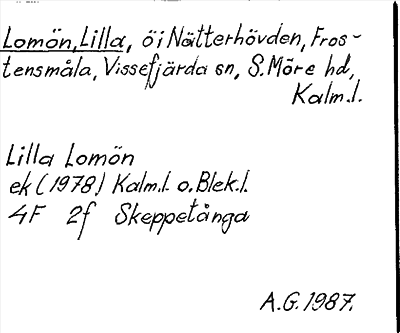 Lomön, Lilla, ö i Nätterhövden, Fros-
tensmåla, Vissefjärda sn, S. Möre hd,
Kalm.l.
Lilla Lomön
ek (1978) Kalm.l. o. Blek.l.
4F 2f Skeppetånga
A.G. 1987.